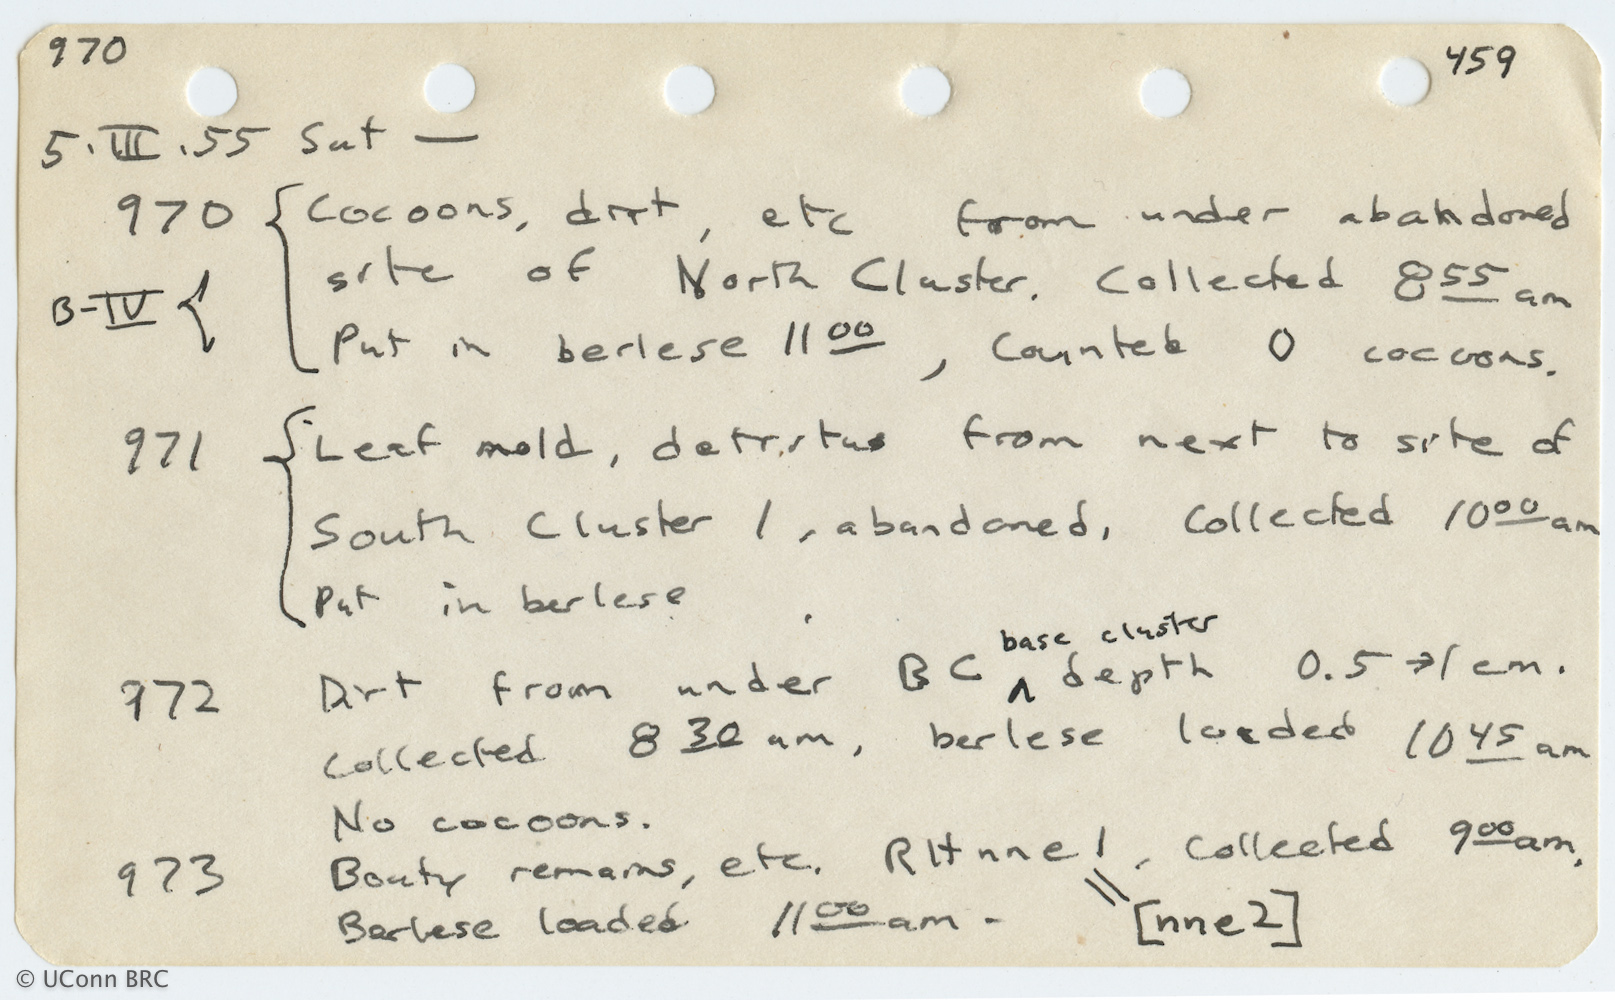 970 459
5.III.55 Sat —
970 { Cocoons, dirt, etc from under abandoned
site of North Cluster. Collected 8 55 am
B-IV {
Put in berlese 11 00, Counted 0 cocoons.
971 { Leaf mold, detritus from next to site of
South Cluster 1, abandoned, Collected 10 00 am
Put in berlese
base cluster
972 Dirt from under BC ^ depth 0.5 → 1 cm.
collected 8 30 am, berlese loaded 10 45 am
No cocoons.
973 Booty remains, etc. RH nne 1, Collected 9 00 am,
Berlese loaded 11 00 am - [nne2]
© UConn BRC